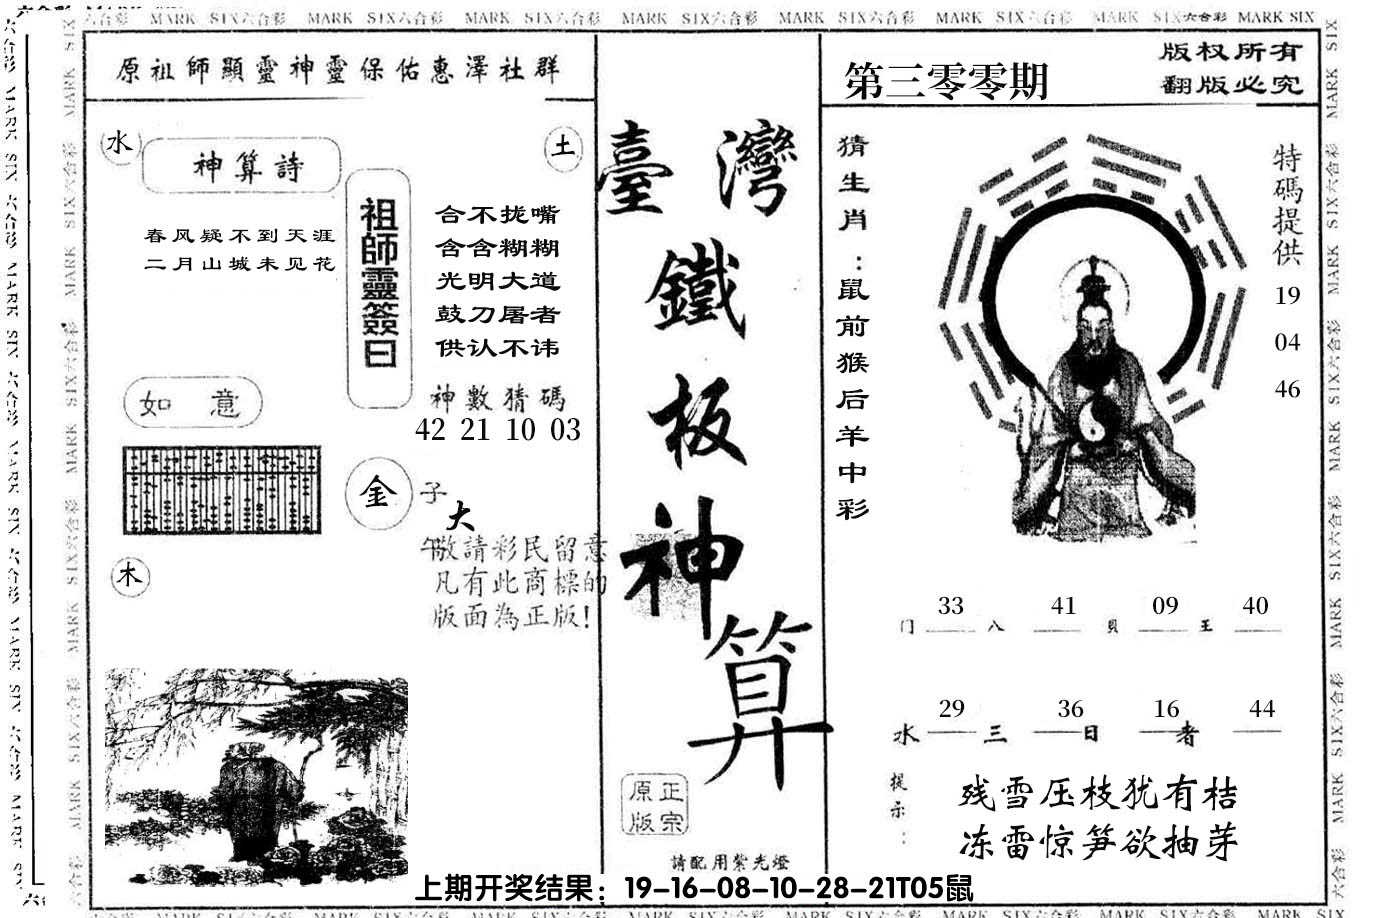 MARK SIX六合彩 MARK SIX六合彩 MARK SIX六合彩 MARK SIX六合彩 MARK SIX六合彩 MARK SIX六合彩 MARK SIX六合彩 MARK SIX
原祖師顯靈神靈保佑惠澤社群
水
神算詩
土
春风疑不到天涯
二月山城未见花
祖師靈簽曰
合不拢嘴
含含糊糊
光明大道
鼓刀屠者
供认不讳
神數猜碼
42 21 10 03
如意
金
子
大
午
敬請彩民留意
凡有此商標的
版面為正版!
木
臺灣
鐵
板
神
算
正宗
原版
請配用紫光燈
第三零零期
版权所有
翻版必究
猜生肖:鼠前猴后羊中彩
特碼提供
19
04
46
门 33 八 41 貝 09 王 40
水 29 三 36 日 16 者 44
提示:
残雪压枝犹有桔
冻雷惊笋欲抽芽
上期开奖结果：19-16-08-10-28-21T05鼠